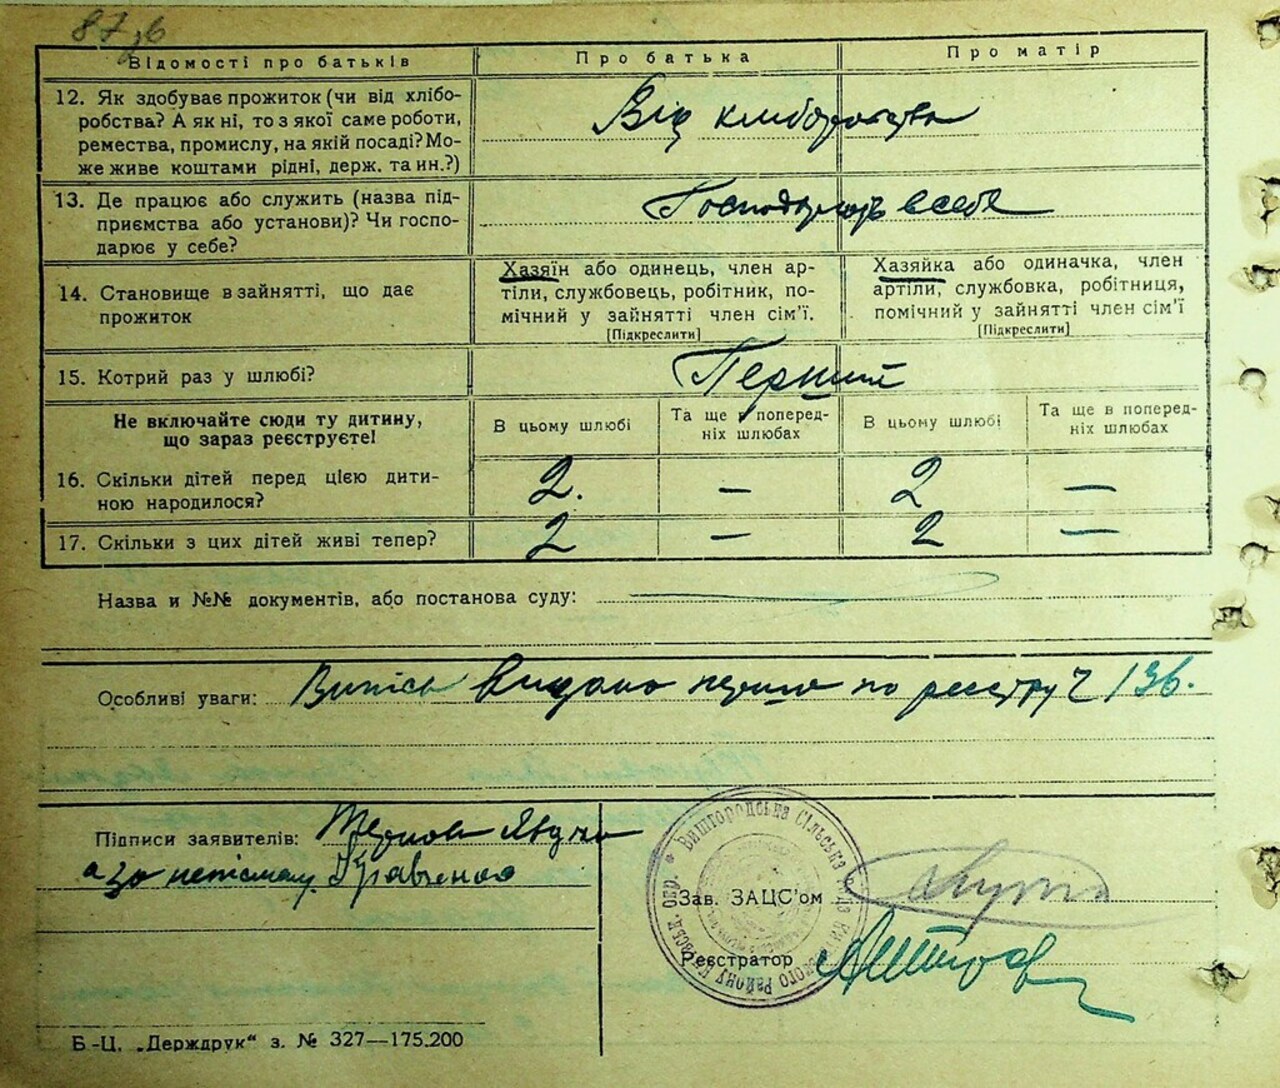 87 зв
Відомості про батьків
Про батька
Про матір
12. Як здобуває прожиток (чи від хлібо-
робства? А як ні, то з якої саме роботи,
ремества, промислу, на якій посаді? Мо-
же живе коштами рідні, держ. та ин.?)
Від хліборобства
13. Де працює або служить (назва під-
приємства або установи)? Чи госпо-
дарює у себе?
в себе
14. Становище в зайнятті, що дає
прожиток
Хазяїн або одинець, член ар-
тіли, службовець, робітник, по-
мічний у зайнятті член сім'ї.
[Підкреслити]
Хазяйка або одиначка, член
артіли, службовка, робітниця,
помічний у зайнятті член сім'ї
[Підкреслити]
15. Котрий раз у шлюбі?
Перший
Не включайте сюди ту дитину,
що зараз реєструєте!
В цьому шлюбі
Та ще в поперед-
ніх шлюбах
В цьому шлюбі
Та ще в поперед-
ніх шлюбах
16. Скільки дітей перед цією дити-
ною народилося?
2. — 2 —
17. Скільки з цих дітей живі тепер?
2 — 2 —
Назва и №№ документів, або постанова суду:
Особливі уваги: Випись видано перше по реєстру Ч 136.
Підписи заявителів:
а за неписьмен. Кравченко
Вишгородська Сільська Рада Київського Району
Зав. ЗАЦС'ом
Реєстратор
Б-Ц. „Держдрук" з. № 327—175.200